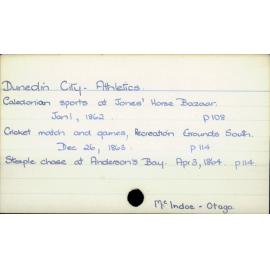 Dunedin City - Athletics.
Caledonian sports at Jones' Horse Bazaar.
Jan 1, 1862. p 108
Cricket match and games, Recreation Grounds South.
Dec 26, 1863. p 114
Steeple chase at Anderson's Bay. Apr 3, 1864. p 114.
Mc Indoe - Otago.